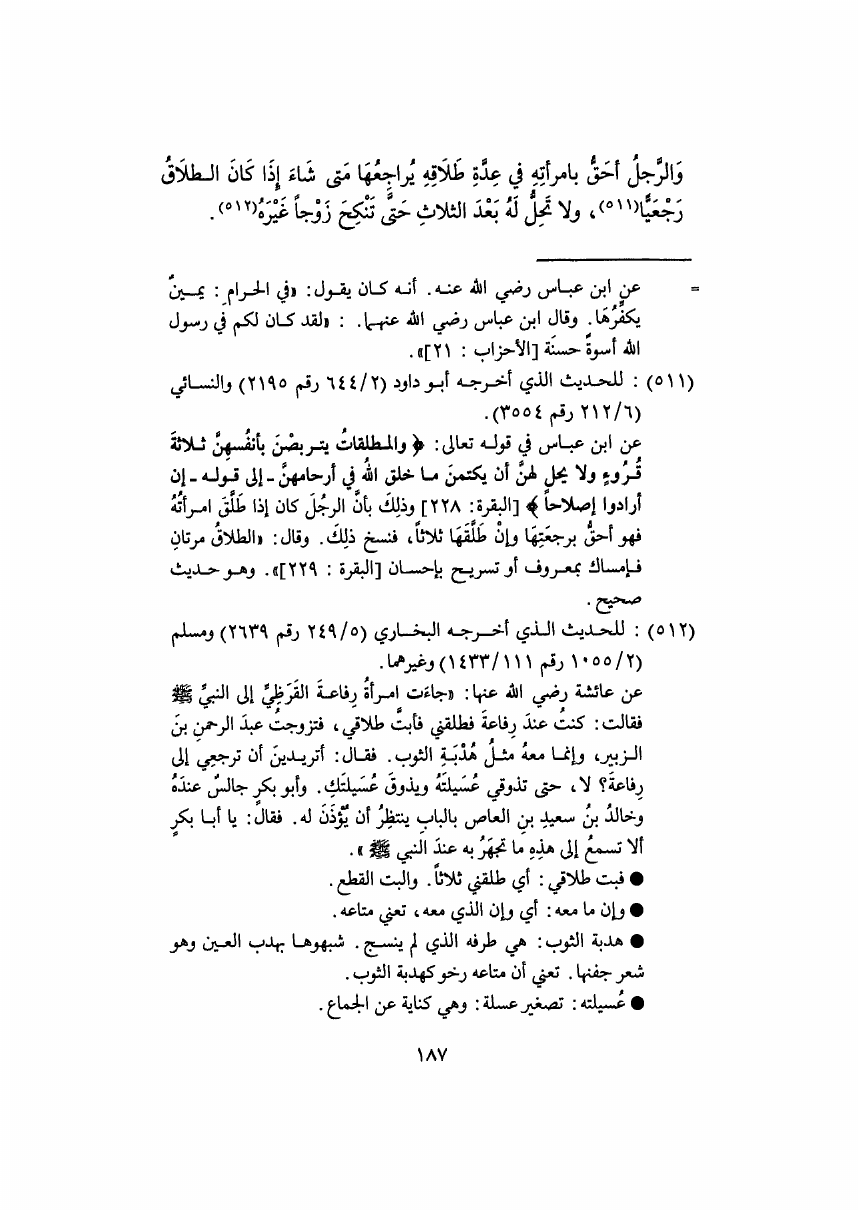 وَالرَّجلُ أحَقُّ بامرأتِهِ في عِدَّةِ طَلَاقِهِ يُراجِعُهَا مَتى شَاءَ إِذَا كَانَ الـطلَاقُ
رَجْعَيًّا(٥١١)، ولا تَحِلُّ لَهُ بَعْدَ الثلاثِ حَتىَّ تَنْكِحَ زَوْجاً غَيْرَهُ(٥١٢).
= عن ابن عبـاس رضي الله عنـه. أنـه كـان يقـول: «في الحـرامِ: يمـينٌ
يكفِّرُهَا. وقال ابن عباس رضي الله عنهـما. : «لقد كـان لكم في رسول
الله أسوةٌ حسنَة [الأحزاب : ٢١]».
(٥١١) : للحـديث الذي أخـرجـه أبـو داود (٢/ ٦٤٤ رقم ٢١٩٥) والنسـائي
(٦/ ٢١٢ رقم ٣٥٥٤).
عن ابن عبـاس في قولـه تعالى: ﴿ والمـطلقاتُ يتـربصْنَ بأنفُسهِنَّ ثـلاثةَ
قُـرُوءٍ ولا يحل لهنَّ أن يكتمنَ مـا خلق اللهُ في أرحامهنَّ - إلى قـولـه - إن
أرادوا إصلاحاً ﴾ [البقرة: ٢٢٨] وذلِكَ بأنَّ الرجُلَ كان إذا طَلَّقَ امـرأتُهُ
فهو أحقُّ برجعَتِهَا وإنْ طَلَّقَهَا ثلاثاً، فنسخ ذلِكَ. وقال: «الطلاقُ مرتانِ
فـإمساك بمعـروف أو تسريـح بإحسـان [البقرة : ٢٢٩]». وهـو حـديث
صحيح.
(٥١٢) : للحـديث الـذي أخـرجـه البخـاري (٥/ ٢٤٩ رقم ٢٦٣٩) ومسلم
(٢/ ١٠٥٥ رقم ١١١/ ١٤٣٣) وغيرهما.
عن عائشة رضي الله عنها: «جاءَت امـرأةُ رِفاعـةَ القَرَظِيِّ إلى النبيِّ ﷺ
فقالت: كنتُ عندَ رِفاعةَ فطلقني فأبتَّ طلاقي، فتزوجتُ عبدَ الرحمنِ بنَ
الـزبير، وإنمـا معهُ مثـلُ هُدْبَـةِ الثوب. فقـال: أتريـدينَ أن ترجعِي إلى
رِفاعةَ؟ لا، حتى تذوقي عُسَيلتَهُ ويذوقَ عُسَيلتَكِ. وأبو بكرٍ جالسٌ عندَهُ
وخالدُ بنُ سعيدِ بنِ العاص بالبابِ ينتظِرُ أن يُؤذَنَ له. فقال: يا أبـا بكرٍ
ألا تسمعُ إلى هذِهِ ما تجهَرُ به عندَ النبي ﷺ ».
● فبت طلاقي: أي طلقني ثلاثاً. والبت القطع.
● وإن ما معه: أي وإن الذي معه، تعني متاعه.
● هدبة الثوب: هي طرفه الذي لم ينسـج. شبهوهـا بهدب العـين وهو
شعر جفنها. تعني أن متاعه رخو كهدبة الثوب.
● عُسيلته: تصغير عسلة: وهي كناية عن الجماع.
١٨٧